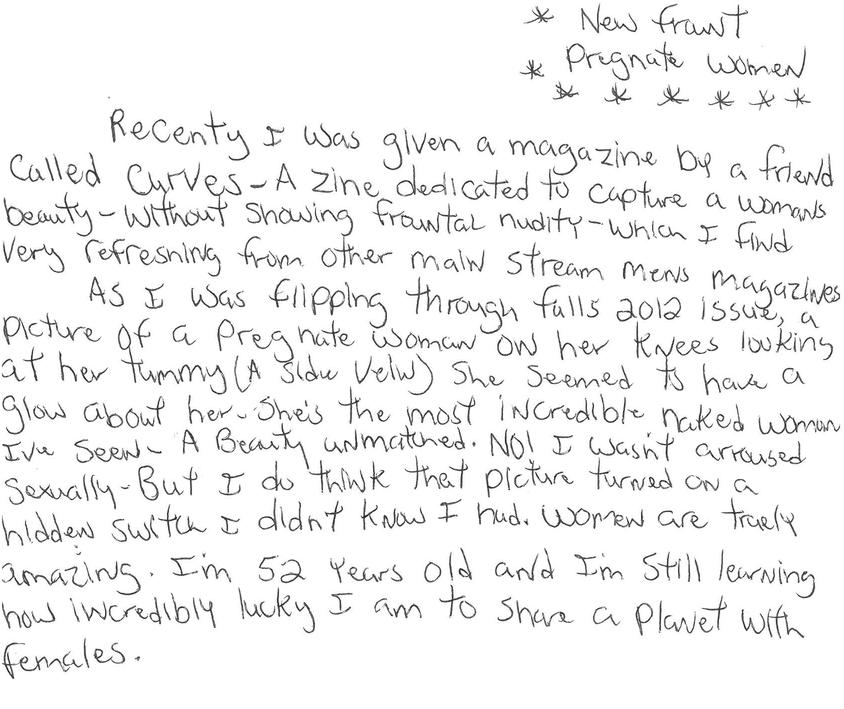 * New frawt
* Pregnate women
* * * * * *
Recenty I was given a magazine by a friend
Called Curves - A zine dedicated to capture a womans
beauty - without showing frawntal nudity - which I find
very refreshing from other main stream mens magazines
As I was flipping through falls 2012 issue, a
picture of a pregnate woman on her knees looking
at her tummy (A side veiw) She seemed to have a
glow about her. She's the most incredible naked woman
I've seen - A Beauty unmatched. NO! I wasn't arroused
sexually - But I do think that picture turned on a
hidden switch I didn't know I had. Women are truely
amazing. I'm 52 years old and I'm still learning
how incredibly lucky I am to share a planet with
females.